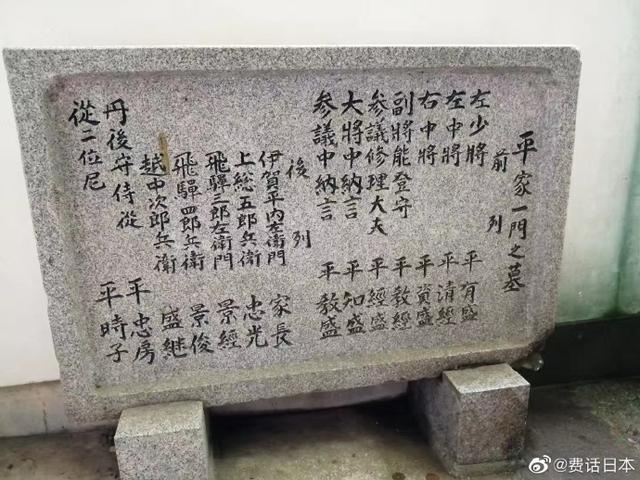 平家一門之墓
前列
左少將 平有盛
左中將 平清經
右中將 平資盛
副將能登守 平教經
參議修理大夫 平經盛
大將中納言 平知盛
參議中納言 平教盛
後列
伊賀平內左衛門 家長
上総五郎兵衛 忠光
飛驒三郎左衛門 景經
飛驒四郎兵衛 景俊
越中次郎兵衛 盛継
丹後守侍從 平忠房
從二位尼 平時子
@费话日本